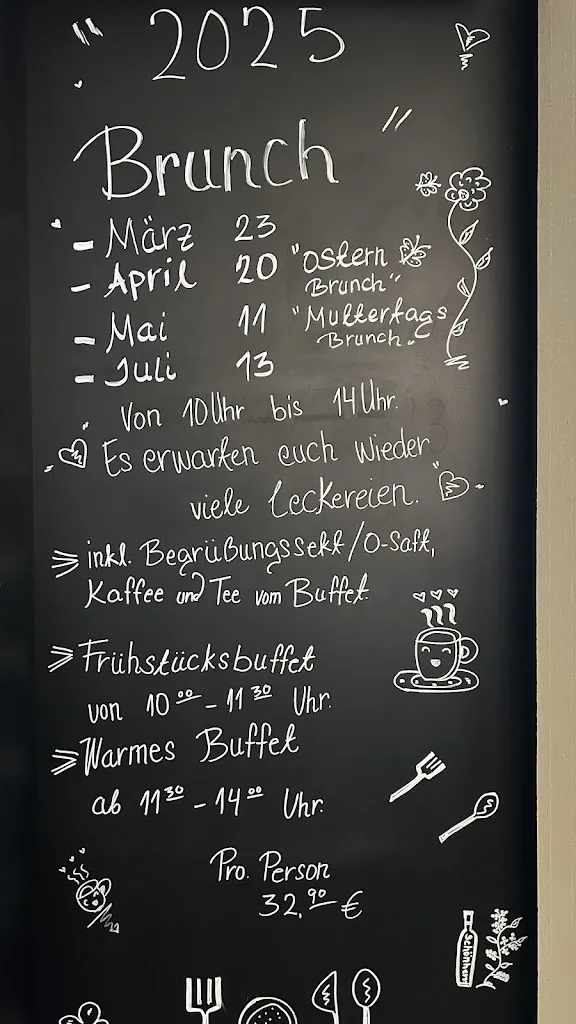 " 2025
Brunch "
- März 23
- April 20 "Ostern
Brunch"
- Mai 11 "Muttertags
Brunch"
- Juli 13
Von 10Uhr bis 14Uhr.
Es erwarten euch wieder
viele Leckereien.
inkl. Begrüßungssekt/O-Saft,
Kaffee und Tee vom Buffet.
Frühstücksbuffet
von 10 00 - 11 30 Uhr.
Warmes Buffet
ab 11 30 - 14 00 Uhr.
Pro. Person
32,90 €
Schönherr